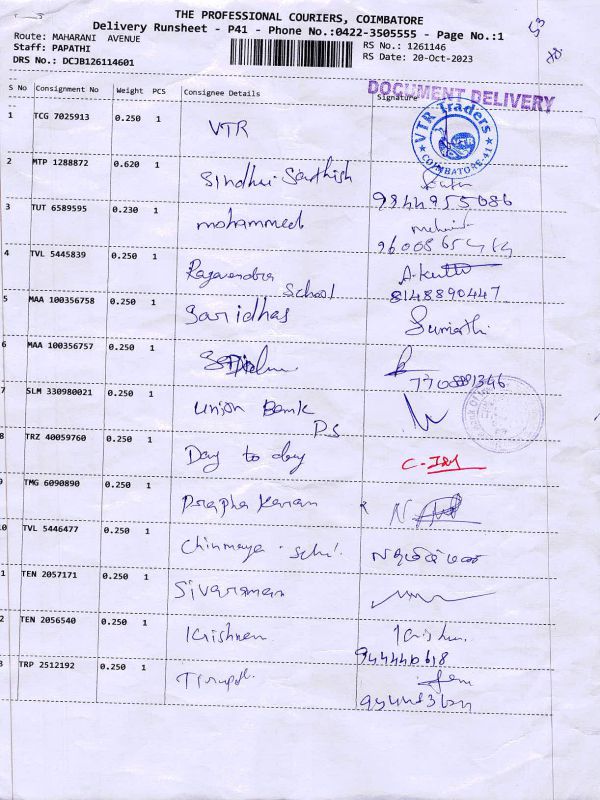 THE PROFESSIONAL COURIERS, COIMBATORE
Delivery Runsheet - P41 - Phone No.:0422-3505555 - Page No.:1
Route: MAHARANI AVENUE
Staff: PAPATHI
DRS No.: DCJB126114601
RS No.: 1261146
RS Date: 20-Oct-2023
53
S No Consignment No Weight PCS Consignee Details Signature
DOCUMENT DELIVERY
1 TCG 7025913 0.250 1 VTR
VTR Traders
VTR
COIMBATORE-41
2 MTP 1288872 0.620 1 Sindhu Sathish
9844955086
3 TUT 6589595 0.230 1 mohammed
4 TVL 5445839 0.250 1 Ragavendra
School
8148890447
5 MAA 100356758 0.250 1 Saridhas Sumathi
6 MAA 100356757 0.250 1
7 SLM 330980021 0.250 1 Union Bank
PS
8 TRZ 40059760 0.250 1 Day to day
9 TMG 6090890 0.250 1 Prapha Karan
0 TVL 5446477 0.250 1 Chinmaya
1 TEN 2057171 0.250 1 Sivaraman
2 TEN 2056540 0.250 1 Krishnan
3 TRP 2512192 0.250 1